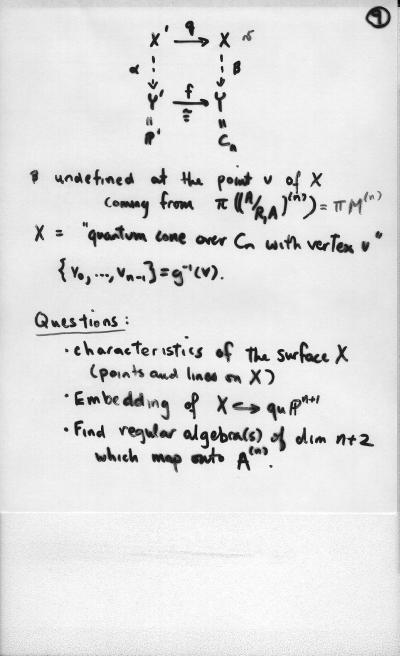 9
X' g→ X v
α β
Y' f→ Y
≅
‖ ‖
P' Cn
β undefined at the point v of X
coming from π((A/R,A)^(n)) = πM^(n)
X = "quantum cone over Cn with vertex v"
{v0,...,vn-1} = g⁻¹(v).
Questions:
• characteristics of the surface X
(points and lines on X)
• Embedding of X ↪ qu P^n+1
• Find regular algebra(s) of dim n+2
which map onto A^(n).